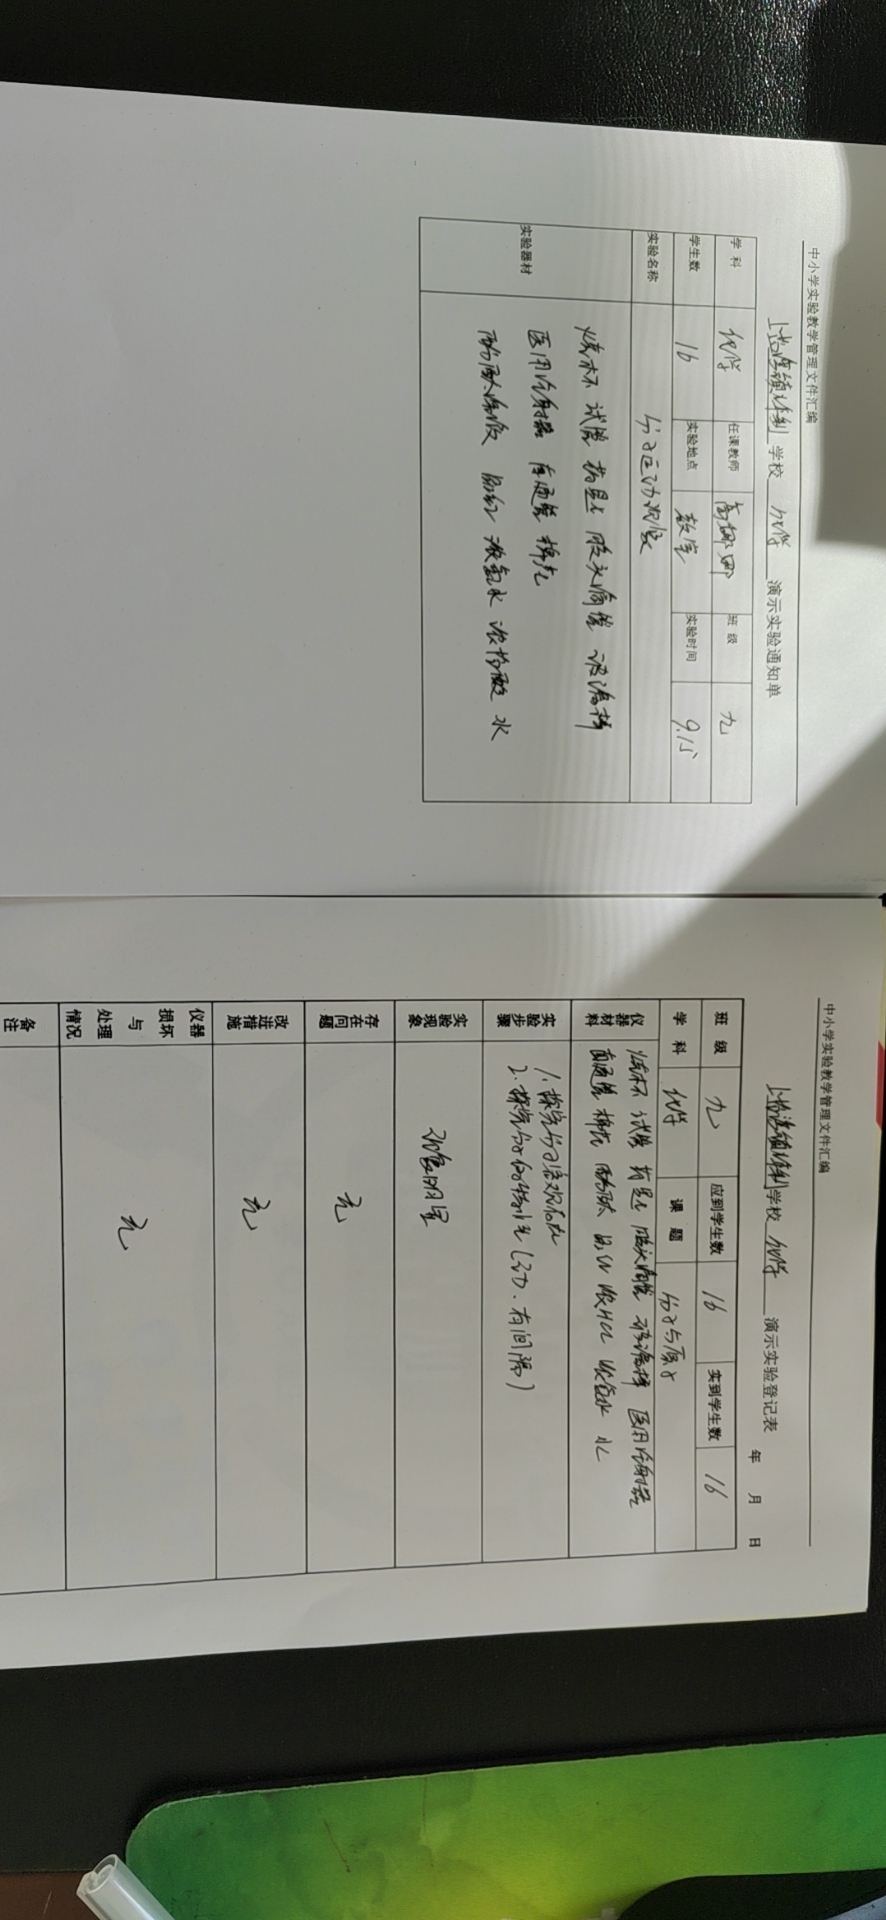 中小学实验教学管理文件汇编
学校 化学 演示实验通知单
学科 化学 任课教师 高娜娜 班级 九
学生数 16 实验地点 教室 实验时间 9.15
实验名称 分子运动现象
实验器材
烧杯 试管 药匙 胶头滴管 玻璃棒
医用注射器 直通管 棉花
酚酞溶液 品红 浓氨水 浓盐酸 水
中小学实验教学管理文件汇编
学校 化学 演示实验登记表
年 月 日
班级 九 应到学生数 16 实到学生数 16
学科 化学 课题 分子与原子
仪器材料
烧杯 试管 药匙 胶头滴管 玻璃棒 医用注射器
直通管 棉花 酚酞 品红 浓HCl 浓氨水 水
实验步骤
1. 探究分子
2. 探究分子的特性（运动、有间隔）
实验现象 现象明显
存在问题 无
改进措施 无
仪器损坏与处理情况 无
备注